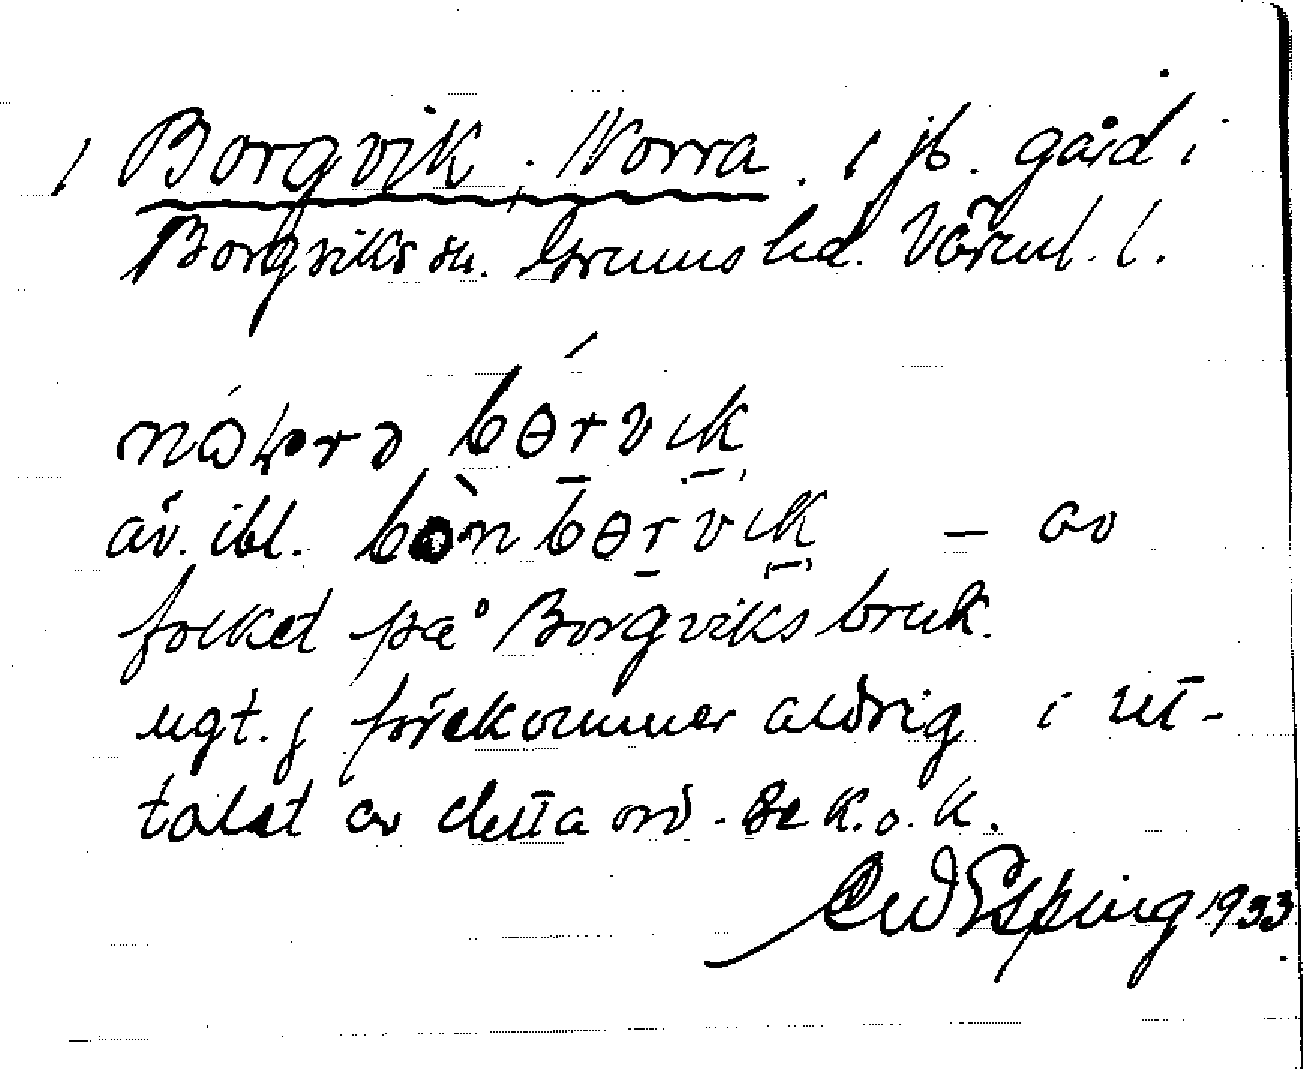 1 Borgvik, Norra. 1 jb. gård i
Borgviks sn. Grums hd. Värml. l.
bɵrvik
äv. ibl. bɵrvik – av
folket på Borgviks bruk.
ugt. j förekommer aldrig i ut-
talet av detta ord. Se K.o.K.
Esping 1933